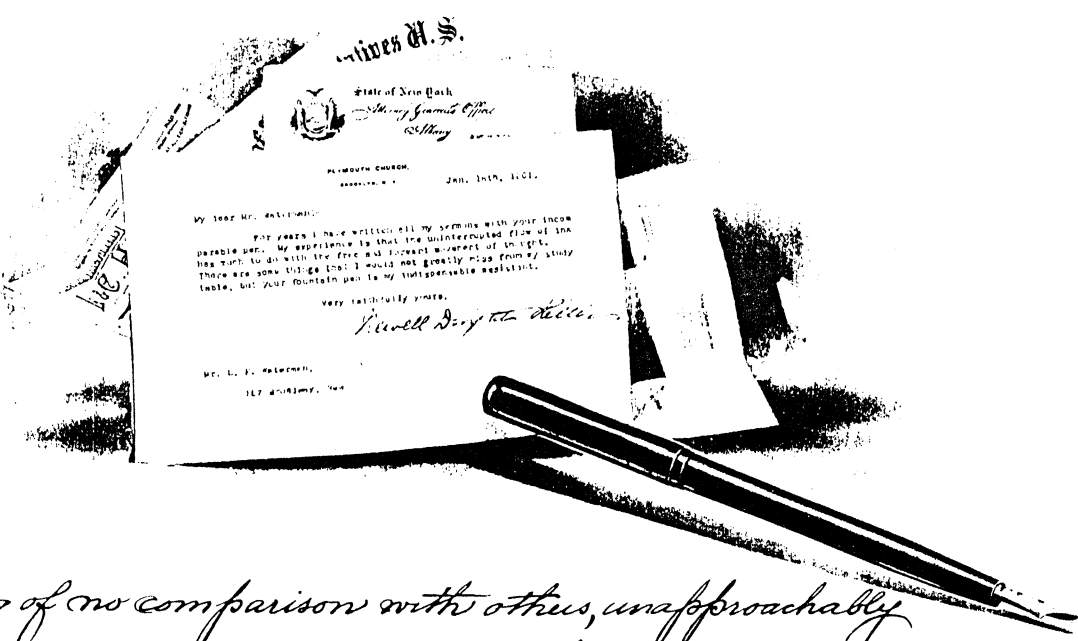 H. S.
State of New York
Attorney General's Office
Albany
PLYMOUTH CHURCH,
BROOKLYN, N. Y.
Jan. 16th, 1901.
My dear Mr. Waterman:
For years I have written all my sermons with your incom
parable pen. My experience is that the uninterrupted flow of ink
has much to do with the free and forward movement of thought.
There are some things that I would not greatly miss from my study
table, but your fountain pen is my indispensable assistant.
Very faithfully yours,
Newell Dwight Hillis
Mr. L. E. Waterman,
Broadway, New
of no comparison with others, unapproachably